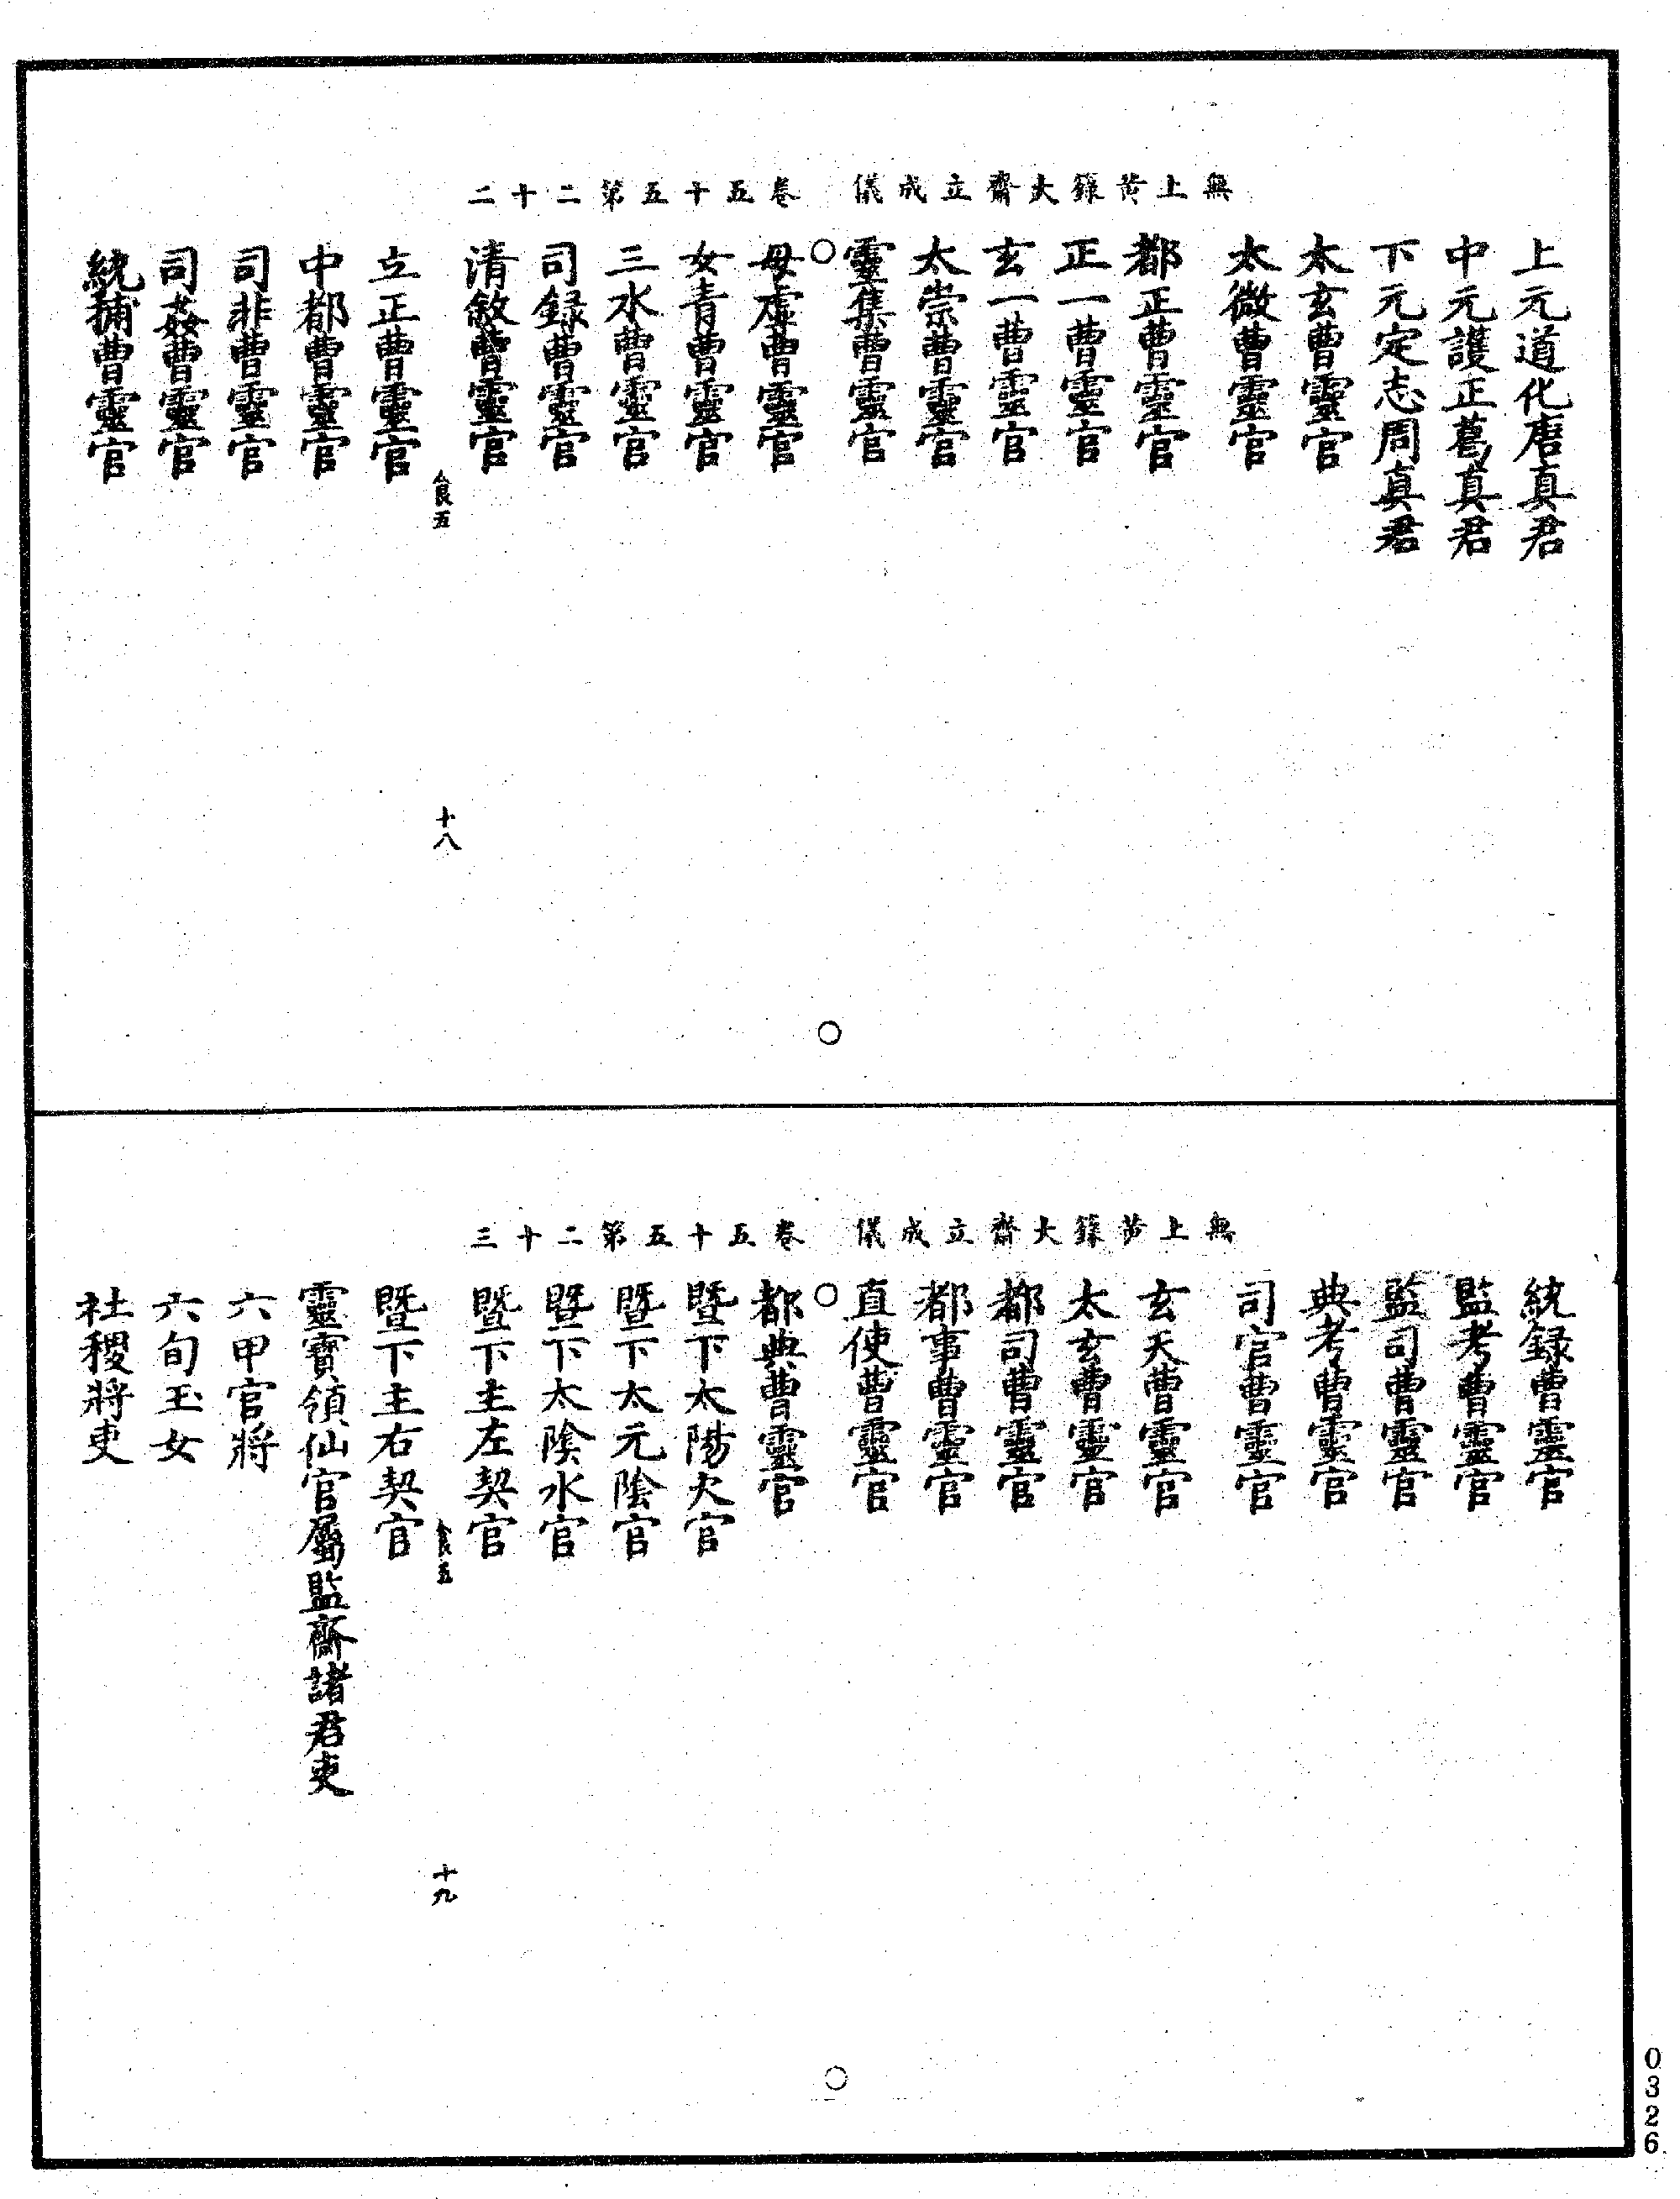 無上黃籙大齋立成儀 卷五十五第二十二
上元道化唐真君
中元護正葛真君
下元定志周真君
太玄曹靈官
太微曹靈官
都正曹靈官
正一曹靈官
玄一曹靈官
太崇曹靈官
靈集曹靈官
毋虛曹靈官
女青曹靈官
三水曹靈官
司録曹靈官
清敘曹靈官
食五
十八
立正曹靈官
中都曹靈官
司非曹靈官
司姦曹靈官
統捕曹靈官
無上黃籙大齋立成儀 卷五十五第二十三
統録曹靈官
監考曹靈官
監司曹靈官
典考曹靈官
司官曹靈官
玄天曹靈官
太玄曹靈官
都司曹靈官
都事曹靈官
直使曹靈官
都典曹靈官
暨下太陽火官
暨下太元陰官
暨下太陰水官
暨下主左契官
食五
十九
暨下主右契官
靈寶領仙官屬監齋諸君吏
六甲官將
六旬玉女
社稷將吏
0326